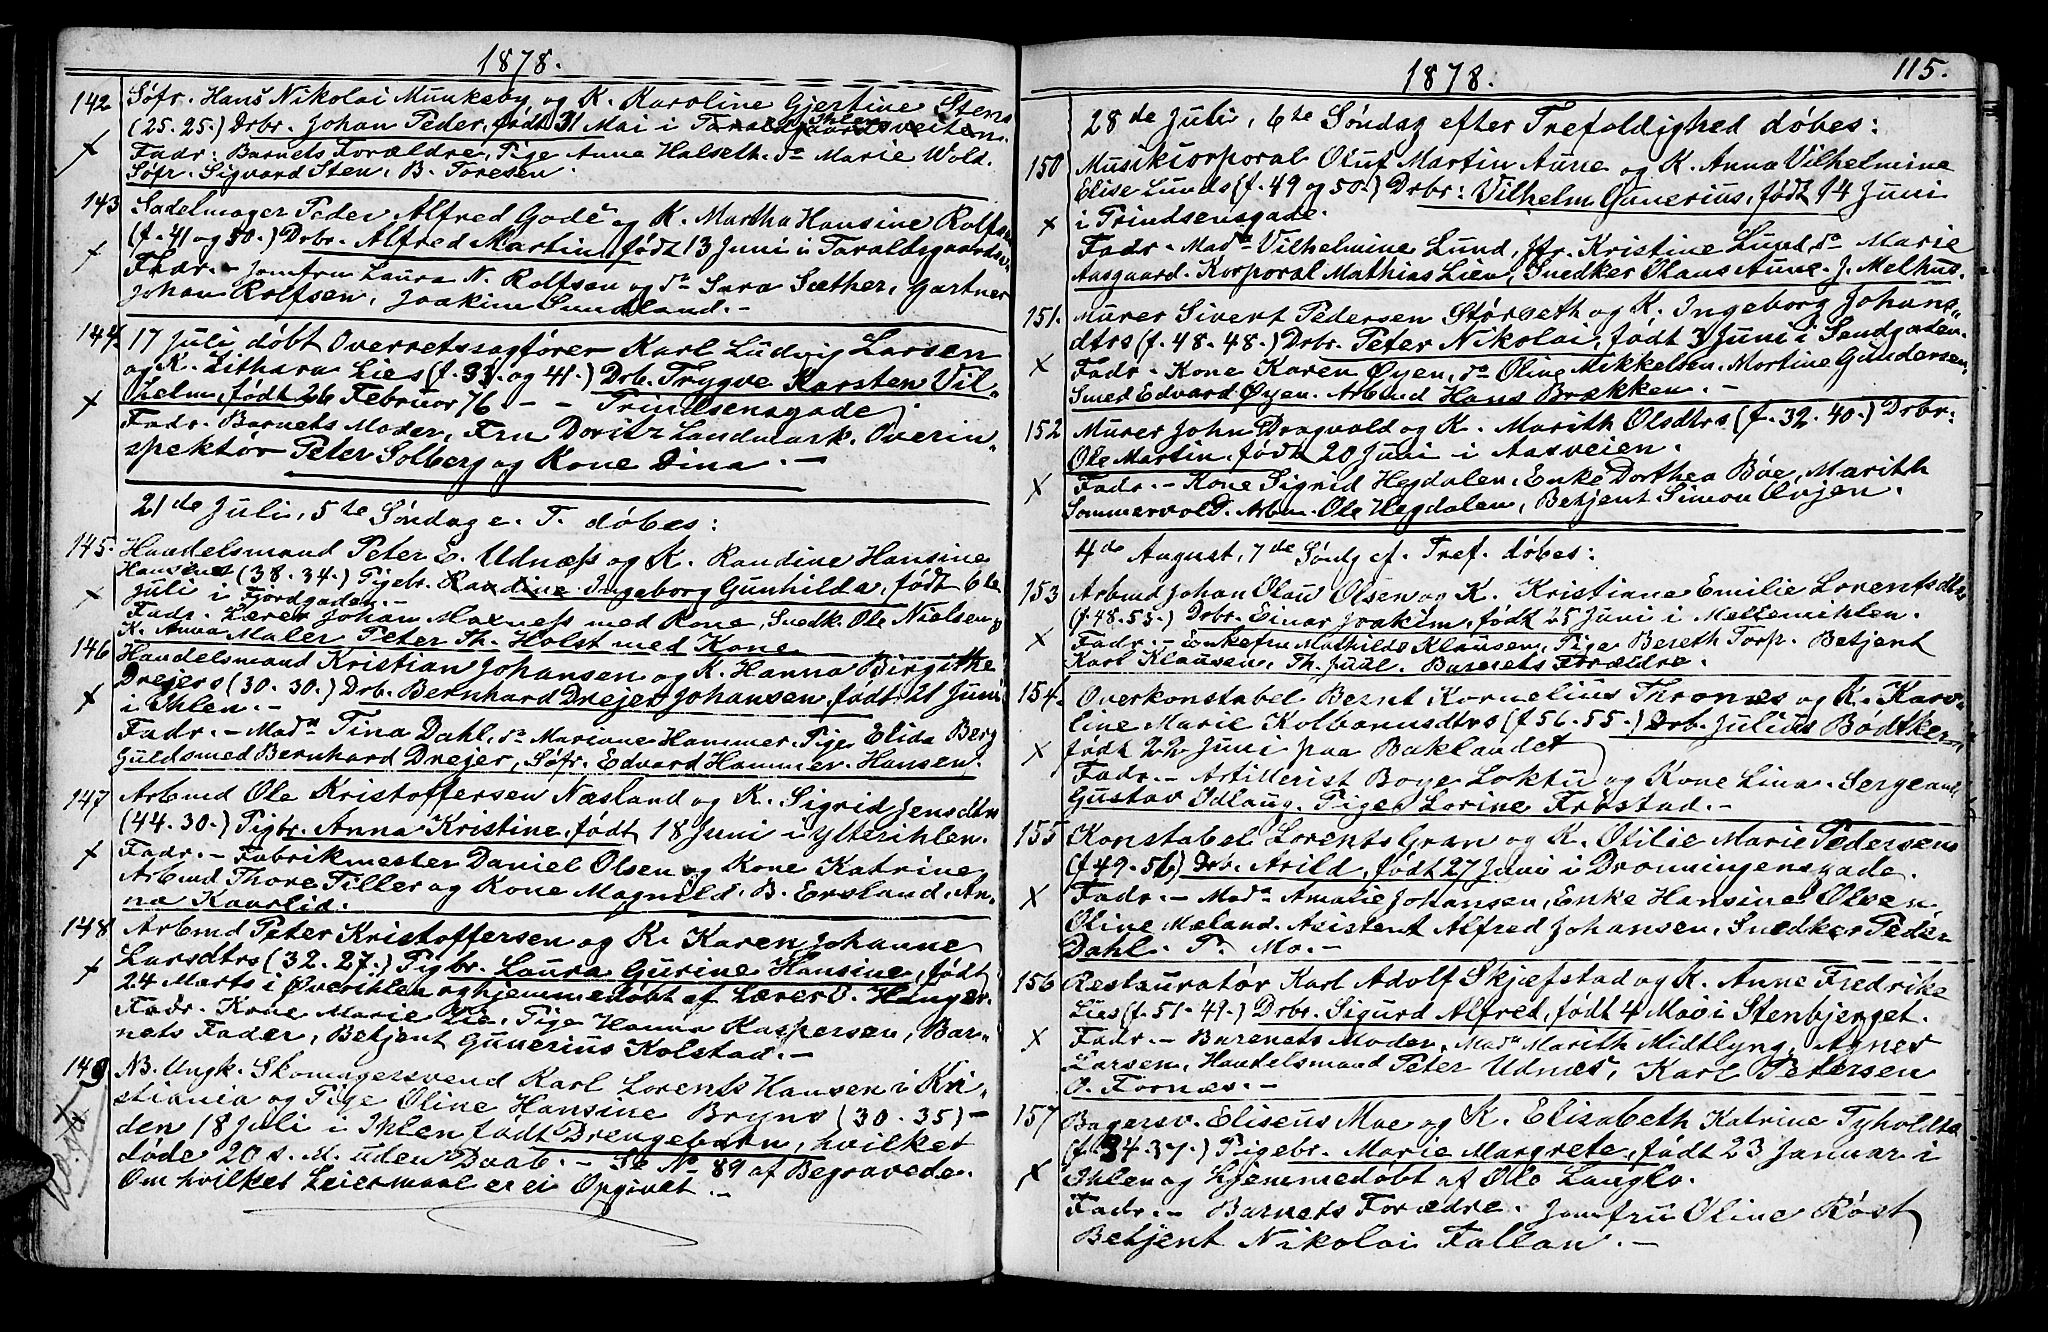 1878.
142 Søfr. Hans Nikolai Munkeby og K. Karoline Gjertine Stens
(25.25.) Drbr. Johan Peder, født 31 Mai i Taraldsgaardsveiten Ihlen
Fadr: Barnets Forældre, Pige Anna Halseth, do Marie Wold.
Søfr. Sigvard Sten, B. Foresen.
143 Sadelmager Peder Alfred Gode og K. Martha Hansine Rolfsen
(f. 41 og 50.) Drbr. Alfred Martin, født 13 Juni i Taraldsgaardsv.
Fadr. – Jomfru Laura N. Rolfsen og do Sara Sæther, Gartner
Johan Rolfsen, Joakim Sundland. –
144. 17 Juli døbt Overretssagfører Karl Ludvig Larsen
og K. Lithara Lies (f. 33. og 41.) Drb. Trygve Karsten Vil-
helm, født 26 Februar 76 – – Trindsensgade
Fadr. Barnets Moder, Fru Doritz Landmark. Overin-
spektør Peter Solberg og Kone Dina. –
21de Juli, 5te Søndag e. T. døbes:
145. Handelsmand Peter E. Udness og K. Randine Hansine
Hansens (38.34.) Pigebr. Randine Ingeborg Gunhilda, født 6te
Juli i Fjordgaden. –
Fadr. Lærer Johan Moxness med Kone, Snedk. Ole Nielsen og
K. Anna Maler Peter Th. Holst med Kone
146 Handelsmand Kristian Johansen og K. Hanna Birgithe
Drejers (30.30.) Drb. Bernhard Drejer Johansen, født 21 Juni
i Ihlen. –
Fadr. – Madm Tina Dahl, do Mariane Hammer, Pige Elida Berg
Guldsmed Bernhard Drejer, Søfr. Edvard Hammer. Hansen.
147 Arbmd Ole Kristoffersen Næsland og K. Sigrid Jensdtrs
(44.30.) Pigbr. Anna Kristine, født 18 Juni i Ytterihlen.
Fadr. – Fabrikmester Daniel Olsen og Kone Katrine
Arbmd Thore Tiller og Kone Magnild. B. Ersland. An-
na Kaarlid.
148 Arbmd Peter Kristoffersen og K. Karen Johanne
Larsdtrs (32.27.) Pigbr. Laura Gurine Hansine, født
24 Marts i Øverihlen og hjemmedøbt af Lærer O. Hanger.
Fadr. Kone Marie Lie, Pige Hanna Kaspersen, Bar-
nets Fader, Betjent Gunerius Kolstad. –
149 NB. Ungk. Skomagersvend Karl Lorents Hansen i Kri-
stiania og Pige Oline Hansine Bryns (30.35) –
den 18 Juli i Ihlen født Drengebarn, hvilket
døde 20 s. M. uden Daab. – Se No 89 af Begravede.
Om hvilket Leiermaal er ei Opgivet. –
1878. 115.
28de Juli, 6te Søndag efter Trefoldighed døbes:
150 Musikkorporal Oluf Martin Aune og K. Anna Vilhelmine
Elise Lunds (f. 49 og 50.) Drbr: Vilhelm Gunerius, født 14 Juni
i Prindsensgade.
Fadr. – Madm Vilhelmine Lund, Jfr. Kristine Lund, do Marie
Aasgaard. Korporal Mathias Lien, Snedker Olaus Aune. J. Melhus.
151. Murer Sivert Pedersen Størseth og K. Ingeborg Johans-
dtrs (f. 48.48.) Drbr. Peter Nikolai, født 3 Juni i Sandgaden.
Fadr. – Kone Karen Øyen, do Oline Mikkelsen. Martine Gundersen,
Smed Edvard Øyen. Arbmd Hans Brækken. –
152 Murer John Dragvold og K. Marith Olsdtrs (f. 32.40.) Drbr.
Ole Martin, født 20 Juni i Aasveien.
Fadr. – Kone Sigrid Hegdalen, Enke Dorthea Bøe, Marith
Sommervold. Arbm. Ole Hegdalen, Betjent Simon Ovjen.
4de August, 7de Søndg ef. Tref. døbes:
153 Arbmd Johan Olaus Olsen og K. Kristiane Emilie Lorentsdtrs
(f. 48.53.) Drbr. Einar Joakim, født 25 Juni i Mellemihlen.
Fadr. – Enkefru Mathilde Klausen, Pige Bereth Torp. Betjent
Karl Klausen, Th. Juul. Barnets Forældre.
154. Overkonstabel Bernt Kornelius Thrones og K. Karo-
line Marie Kolbanusdtrs (f 56.55.) Drb. Julius Bødtker,
født 22 Juni paa Baklandet
Fadr. – Artillerist Boye Loktu og Kone Lina. Sergeant
Gustav Odlaug. Pige Lorine Frostad. –
155 Konstabel Lorents Gran og K. Otilie Marie Pedersens
(f. 49.56) Drb. Arild, født 27 Juni i Dronningensgade.
Fadr. – Madm Amalie Johansen, Enke Hansine Olsen
Oline Mæland. Assistent Alfred Johansen, Snedker Peder
Dahl. P. Mo. –
156 Restauratør Karl Adolf Skjefstad og K. Anne Fredrike
Lies (f. 51.49.) Drbr. Sigurd Alfred, født 4 Mai i Stenbjerget.
Fadr. – Barnets Moder, Madm Marith Midtlyng, Agnes
Larsen, Handelsmand Peter Udnæs, Karl Petersen
O. Fornæs. –
157 Bagersv. Eliseus Moe og K. Elizabeth Katrine Tyholdts
(f. 34.37.) Pigebr. Marie Margrete, født 23 Januar i
Ihlen og hjemmedøbt af Ole Langlo.
Fadr. – Barnets Forældre. Jomfru Oline Røst
Betjent Nikolai Fallan. –